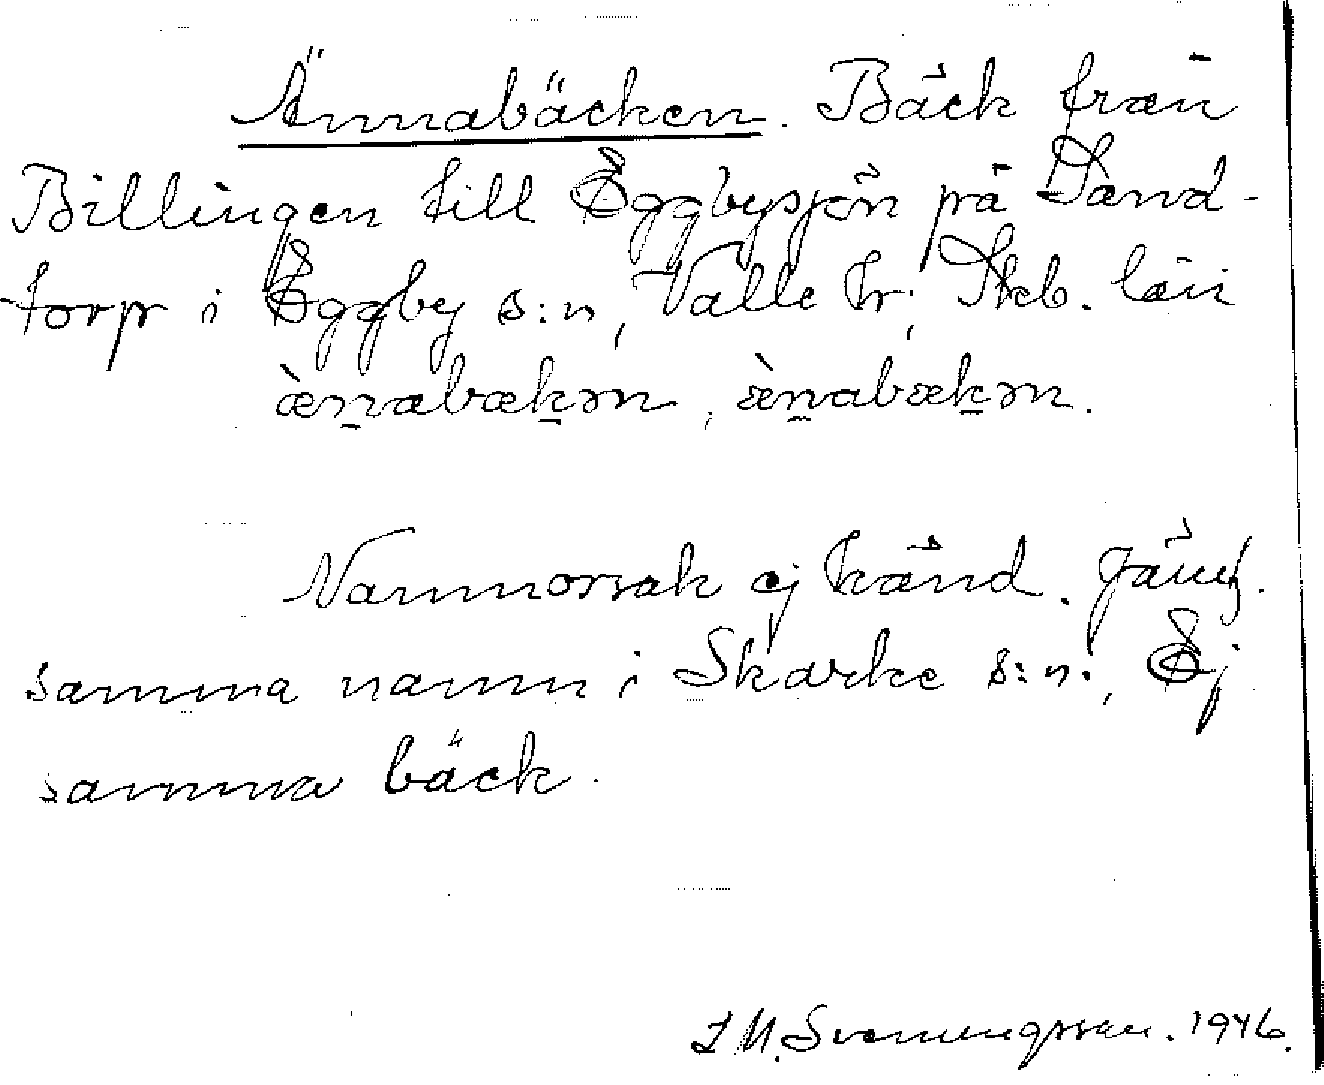 Ännabäcken. Bäck från
Billingen till Eggbysjön på Sand-
torp i Eggby s:n, Valle hr; Skb. län
ænnabækən, ænabækən.
Namnorsak ej känd. Jämf.
samma namn i Skärke s:n. Ej
samma bäck.
Svenungsson. 1946.